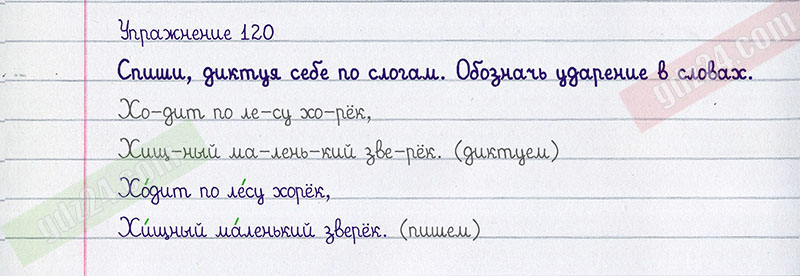 Упражнение 120
Спиши, диктуя себе по слогам. Обозначь ударение в словах.
Хо-дит по ле-су хо-рёк,
Хищ-ный ма-лень-кий зве-рёк. (диктуем)
Хо́дит по ле́су хорёк,
Хи́щный ма́ленький зверёк. (пишем)
gdz24.com
gdz24.com